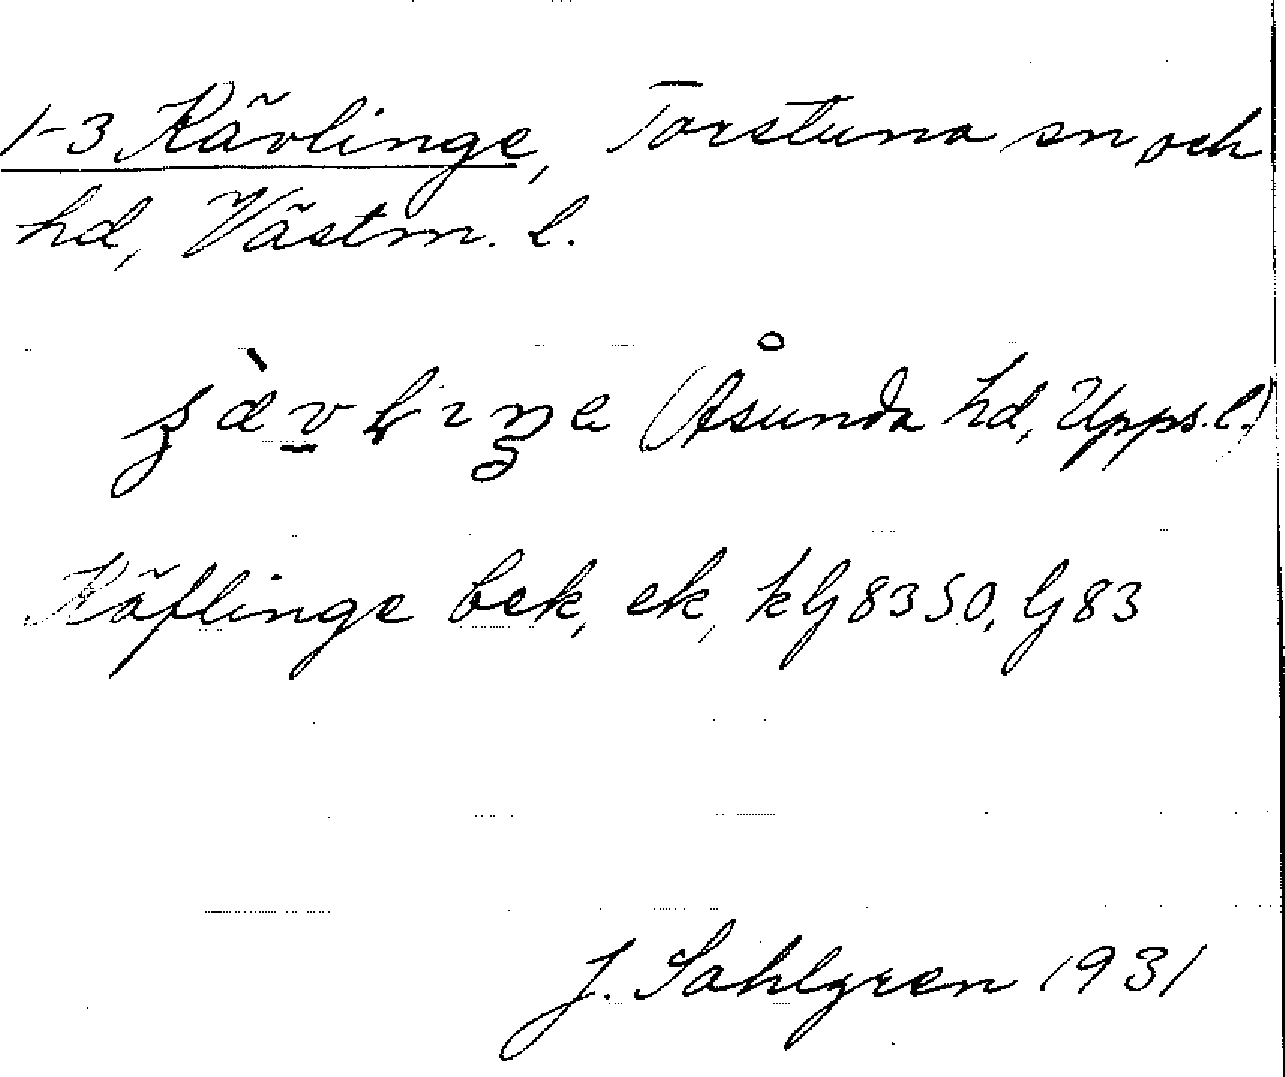 1-3 Kävlinge, Torstuna sn och
hd, Västm. l.
(Åsunda hd, Upps. l.)
Käflinge bek, ek, kG 83 SO, G 83
J. Sahlgren 1931